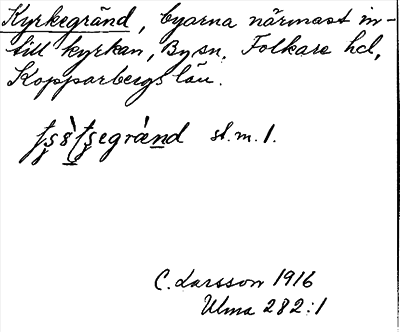 Kyrkegränd, byarna närmast in-
till kyrkan, By sn, Folkare hd,
Kopparbergs län.
st. m. 1.
C. Larsson 1916
Ulma 282:1